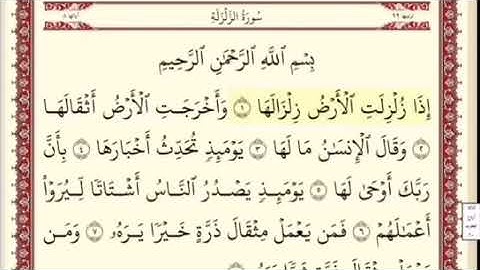 سُورَةُ الزَّلْزَلَةِ
بِسْمِ اللَّهِ الرَّحْمَٰنِ الرَّحِيمِ
إِذَا زُلْزِلَتِ الْأَرْضُ زِلْزَالَهَا ١ وَأَخْرَجَتِ الْأَرْضُ أَثْقَالَهَا
٢ وَقَالَ الْإِنسَانُ مَا لَهَا ٣ يَوْمَئِذٍ تُحَدِّثُ أَخْبَارَهَا ٤ بِأَنَّ
رَبَّكَ أَوْحَىٰ لَهَا ٥ يَوْمَئِذٍ يَصْدُرُ النَّاسُ أَشْتَاتًا لِّيُرَوْا
أَعْمَالَهُمْ ٦ فَمَن يَعْمَلْ مِثْقَالَ ذَرَّةٍ خَيْرًا يَرَهُ ٧ وَمَن